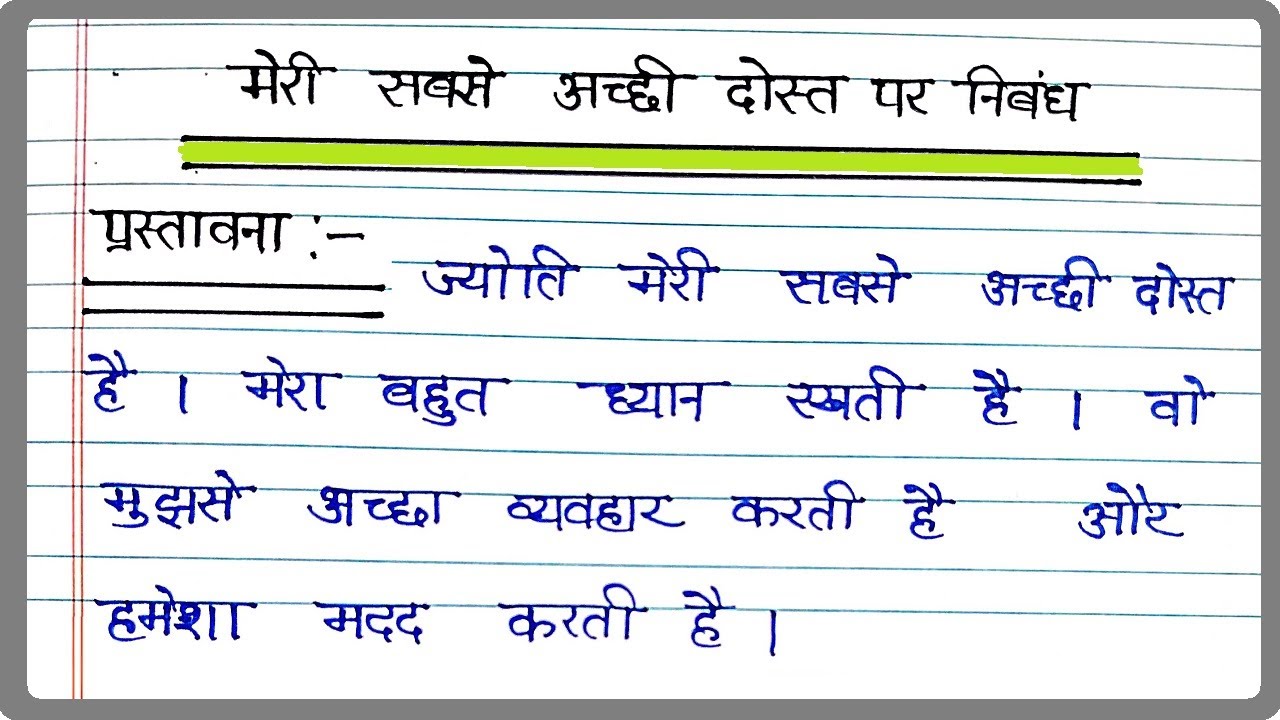 मेरी सबसे अच्छी दोस्त पर निबंध
प्रस्तावना :-
ज्योति मेरी सबसे अच्छी दोस्त
है । मेरा बहुत ध्यान रखती है । वो
मुझसे अच्छा व्यवहार करती है और
हमेशा मदद करती है ।